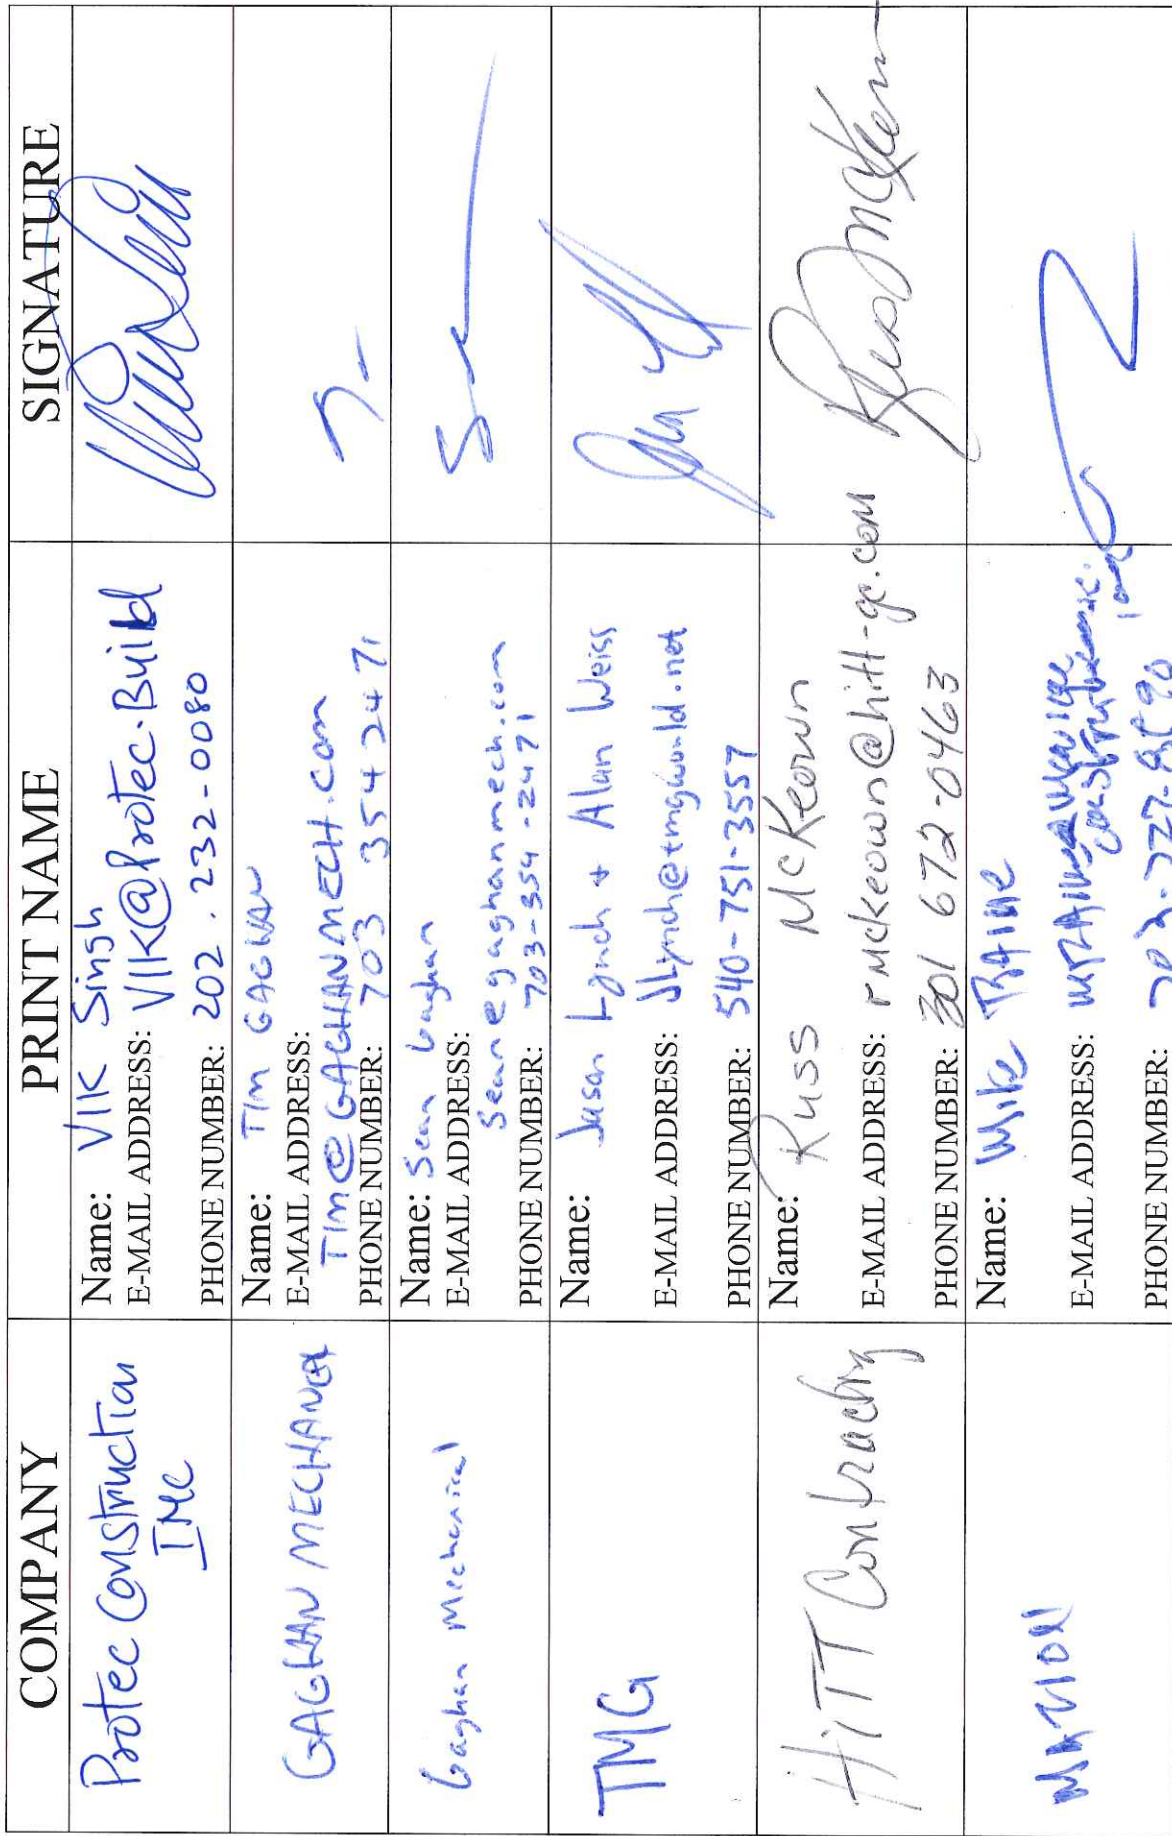 COMPANY PRINT NAME SIGNATURE
Protec Construction
INC
Name: VIK Singh
E-MAIL ADDRESS: VIK@Protec.Build
PHONE NUMBER: 202.232-0080
GAGHAN MECHANICAL
Name: TIM GAGHAN
E-MAIL ADDRESS:
TIM@GAGHANMECH.COM
PHONE NUMBER: 703 354 2471
Gaghan Mechanical
Name: Sean Gaghan
E-MAIL ADDRESS:
sean@gaghanmech.com
PHONE NUMBER: 703-354-2471
TMG
Name: Jason Lynch + Alan Weiss
E-MAIL ADDRESS: JLynch@tmgworld.net
PHONE NUMBER: 540-751-3557
HITT Contracting
Name: Russ McKeown
E-MAIL ADDRESS: rmckeown@hitt-gc.com
PHONE NUMBER: 301 672-0463
Russ McKeown
Name: Mike
E-MAIL ADDRESS:
PHONE NUMBER: